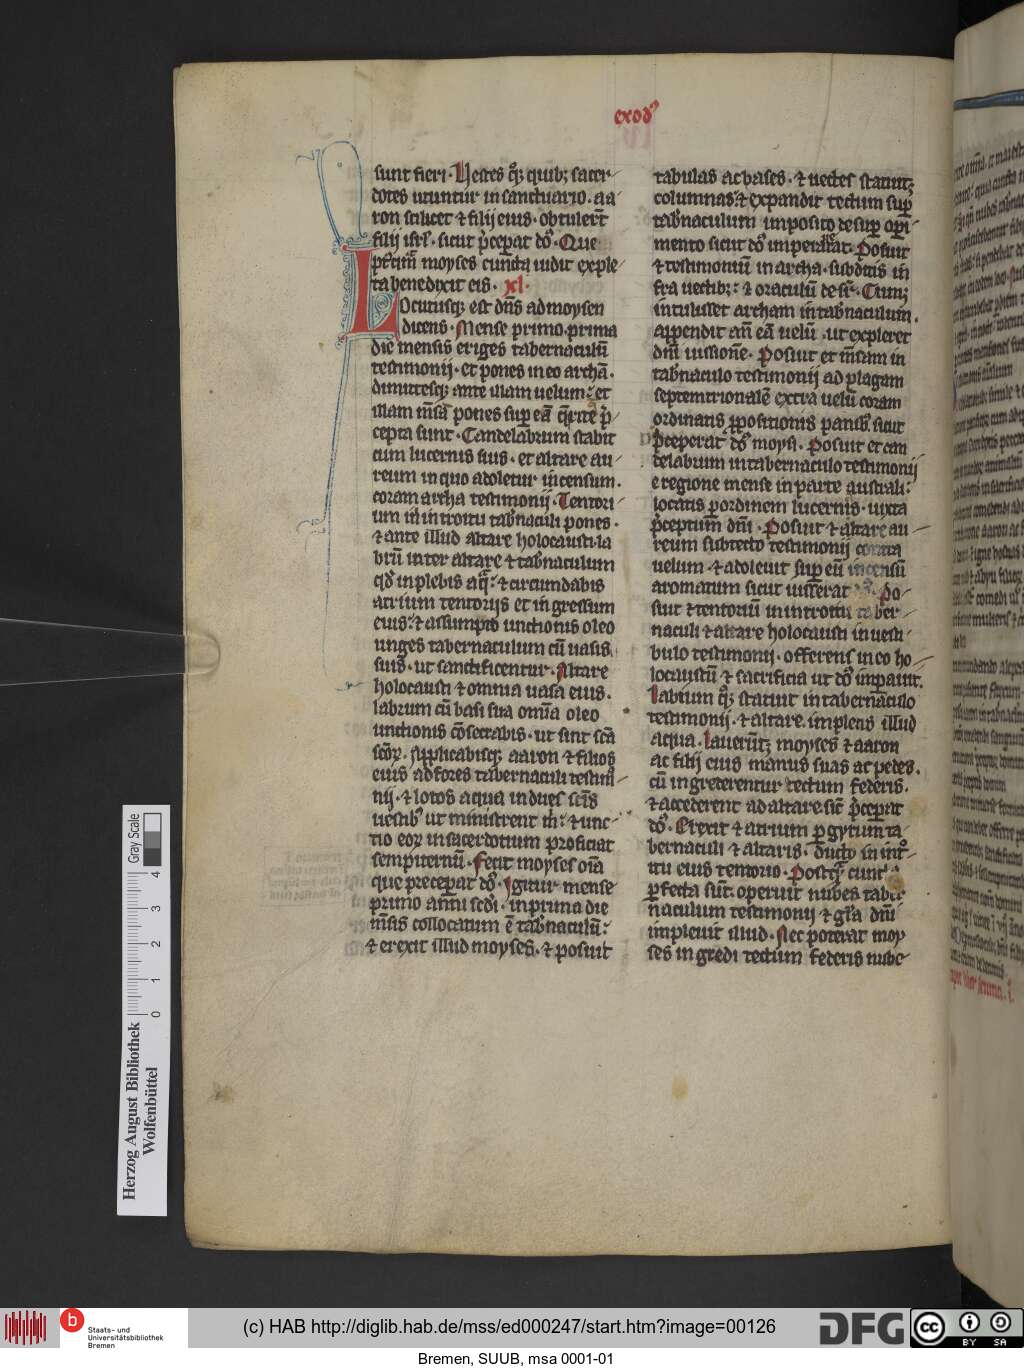 exod᷒
sunt fieri. Vestes q̊q; quib; sacer-
dotes utuntur in sanctuario. aa
ron scilicet ⁊ filij eius. obtulerūt
filij isrl̓. sicut p̄cepat dn̄s. Que
postqm̄ moyses cuncta uidit exple-
ta benedixit eis. xl.
Locutusq; est dn̄s ad moysen
dicens. Mense primo. prima
die mensis eriges tabernaculū
testimonij. et pones in eo archā.
dimittesq; ante illam uelum: et
illam mēsā pones sup eā q̄ rite p̄-
cepta sunt. Candelabrum stabit
cum lucernis suis. et altare au-
reum in quo adoletur incensum.
coram archa testimonij. Tentori-
um in introitu tab̓naculi pones.
⁊ ante illud altare holocausti. la
brū inter altare ⁊ tab̓naculum
qd̓ inplebis aq̄: ⁊ circundabis
atrium tentorijs et ingressum
eius. ⁊ assumpto unctionis oleo
unges tabernaculum cū uasis
suis. ut sanctificentur. Altare
holocausti ⁊ omnia uasa eius.
labrum cū basi sua om̄ia oleo
unctionis cōsecrabis. ut sint scā
scōꝝ. Applicabisq; aaron ⁊ filios
eius ad fores tabernaculi testim-
nij. ⁊ lotos aqua indues scīs
uestib; ut ministrent m̄: ⁊ unc-
tio eoꝝ in sacerdotium proficiat
sempiternū. Fecit moyses oīa
que precepat dn̄s. Igitur mense
primo anni scd̓i. in prima die
mēsis collocatum ē tab̓naculū:
⁊ erexit illud moyses. ⁊ posuit
tabulas ac bases. ⁊ uectes statuitq;
columnas ⁊ expandit tectum sup
tab̓naculum imposito desup opi-
mento sicut dn̄s imperarat. Posuit
⁊ testimoniū in archa. subditis in
fra uectib;: ⁊ oraculū desr̄. Cumq;
intulisset archam in tab̓naculum.
appendit an̄ eā uelū. ut expleret
dn̄i iussionē. Posuit et mēsam in
tab̓naculo testimonij ad plagam
septemtrionalē extra uelū coram
ordinatis ꝓpositionis panib; sicut
p̄ceperat dn̄s moysi. Posuit et can
delabrum in tabernaculo testimonij
e regione mense in parte australi:
locatis p ordinem lucernis. iuxta
p̄ceptum dn̄i. Posuit ⁊ altare au-
reum sub tecto testimonij contra
uelum. ⁊ adoleuit sup eū incensū
aromatum sicut iusserat dn̄s. Po-
suit ⁊ tentoriū in introitu taber-
naculi ⁊ altare holocausti in uesti-
bulo testimonij. offerens in eo ho-
locaustū ⁊ sacrificia ut dn̄s impauit.
Labrum q̊q; statuit in tabernaculo
testimonij. ⁊ altare. implens illud
aqua. Lauerūtq; moyses ⁊ aaron
ac filij eius manus suas ac pedes.
cū ingrederentur tectum federis.
⁊ accederent ad altare sic̄ p̄cepat
dn̄s. Erexit ⁊ atrium p gyrum ta-
bernaculi ⁊ altaris. ducto in intro-
itu eius tentorio. Postq̄ cuncta
pfecta sūt. operuit nubes taber
naculum testimonij ⁊ gl̓a dn̄i
impleuit illud. Nec poterat moy
ses ingredi tectum federis nube
Herzog August Bibliothek
Wolfenbüttel
0 1 2 3 4
Gray Scale
b
Staats- und
Universitätsbibliothek
Bremen
(c) HAB http://diglib.hab.de/mss/ed000247/start.htm?image=00126
DFG
cc
BY SA
Bremen, SUUB, msa 0001-01